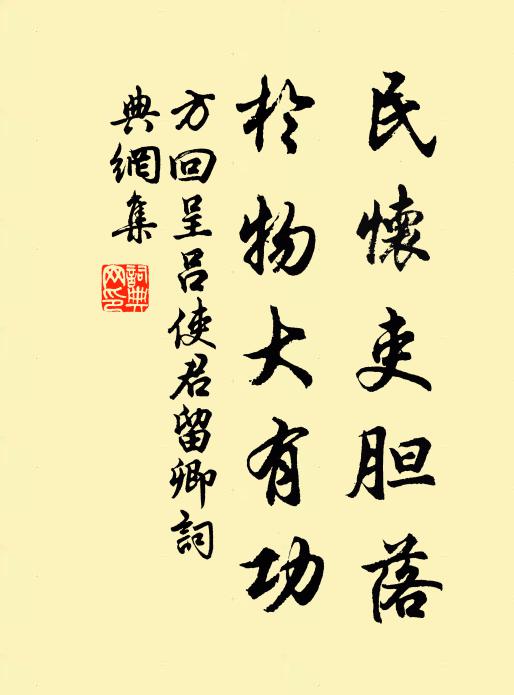 民懷吏胆落
於物大有功
方回呈吕使君留卿詞
典網集
詞典網印